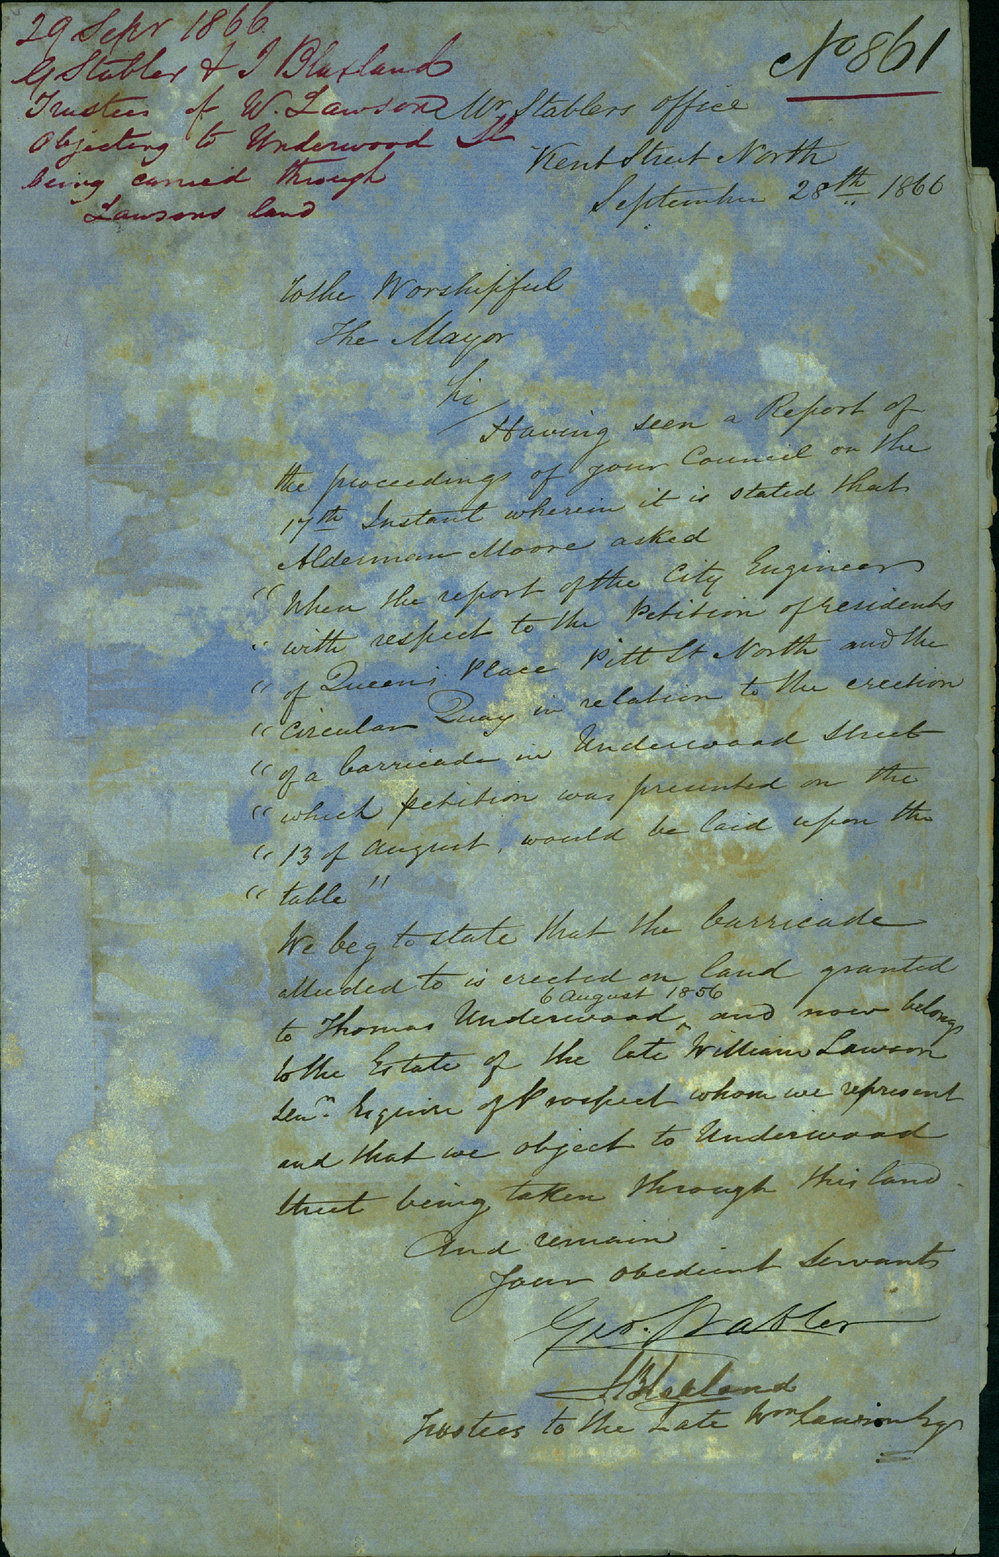 29 Sepr 1866
G Stabler & J Blaxland
Trustees of W. Lawson
Objecting to Underwood St
being carried through
Lawsons land
No 861
Mr Stablers office
Kent Street North
September 28th 1866
To the Worshipful
The Mayor
Sir
Having seen a Report of
the proceedings of your Council on the
17th Instant wherein it is stated that
Alderman Moore asked
"When the report of the City Engineer
" with respect to the Petition of residents
" of Queen's Place Pitt St North and the
" Circular Quay in relation to the erection
" of a barricade in Underwood Street
" which petition was presented on the
" 13 of August, would be laid upon the
" table"
We beg to state that the barricade
alluded to is erected on land granted
6 August 1856
to Thomas Underwood ^ and now belongs
to the Estate of the late William Lawson
Senr. Esquire of Prospect whom we represent
and that we object to Underwood
Street being taken through this land.
And remain
Your obedient Servants
Geo. Stabler
J Blaxland
Trustees to the Late Wm Lawson Esqr